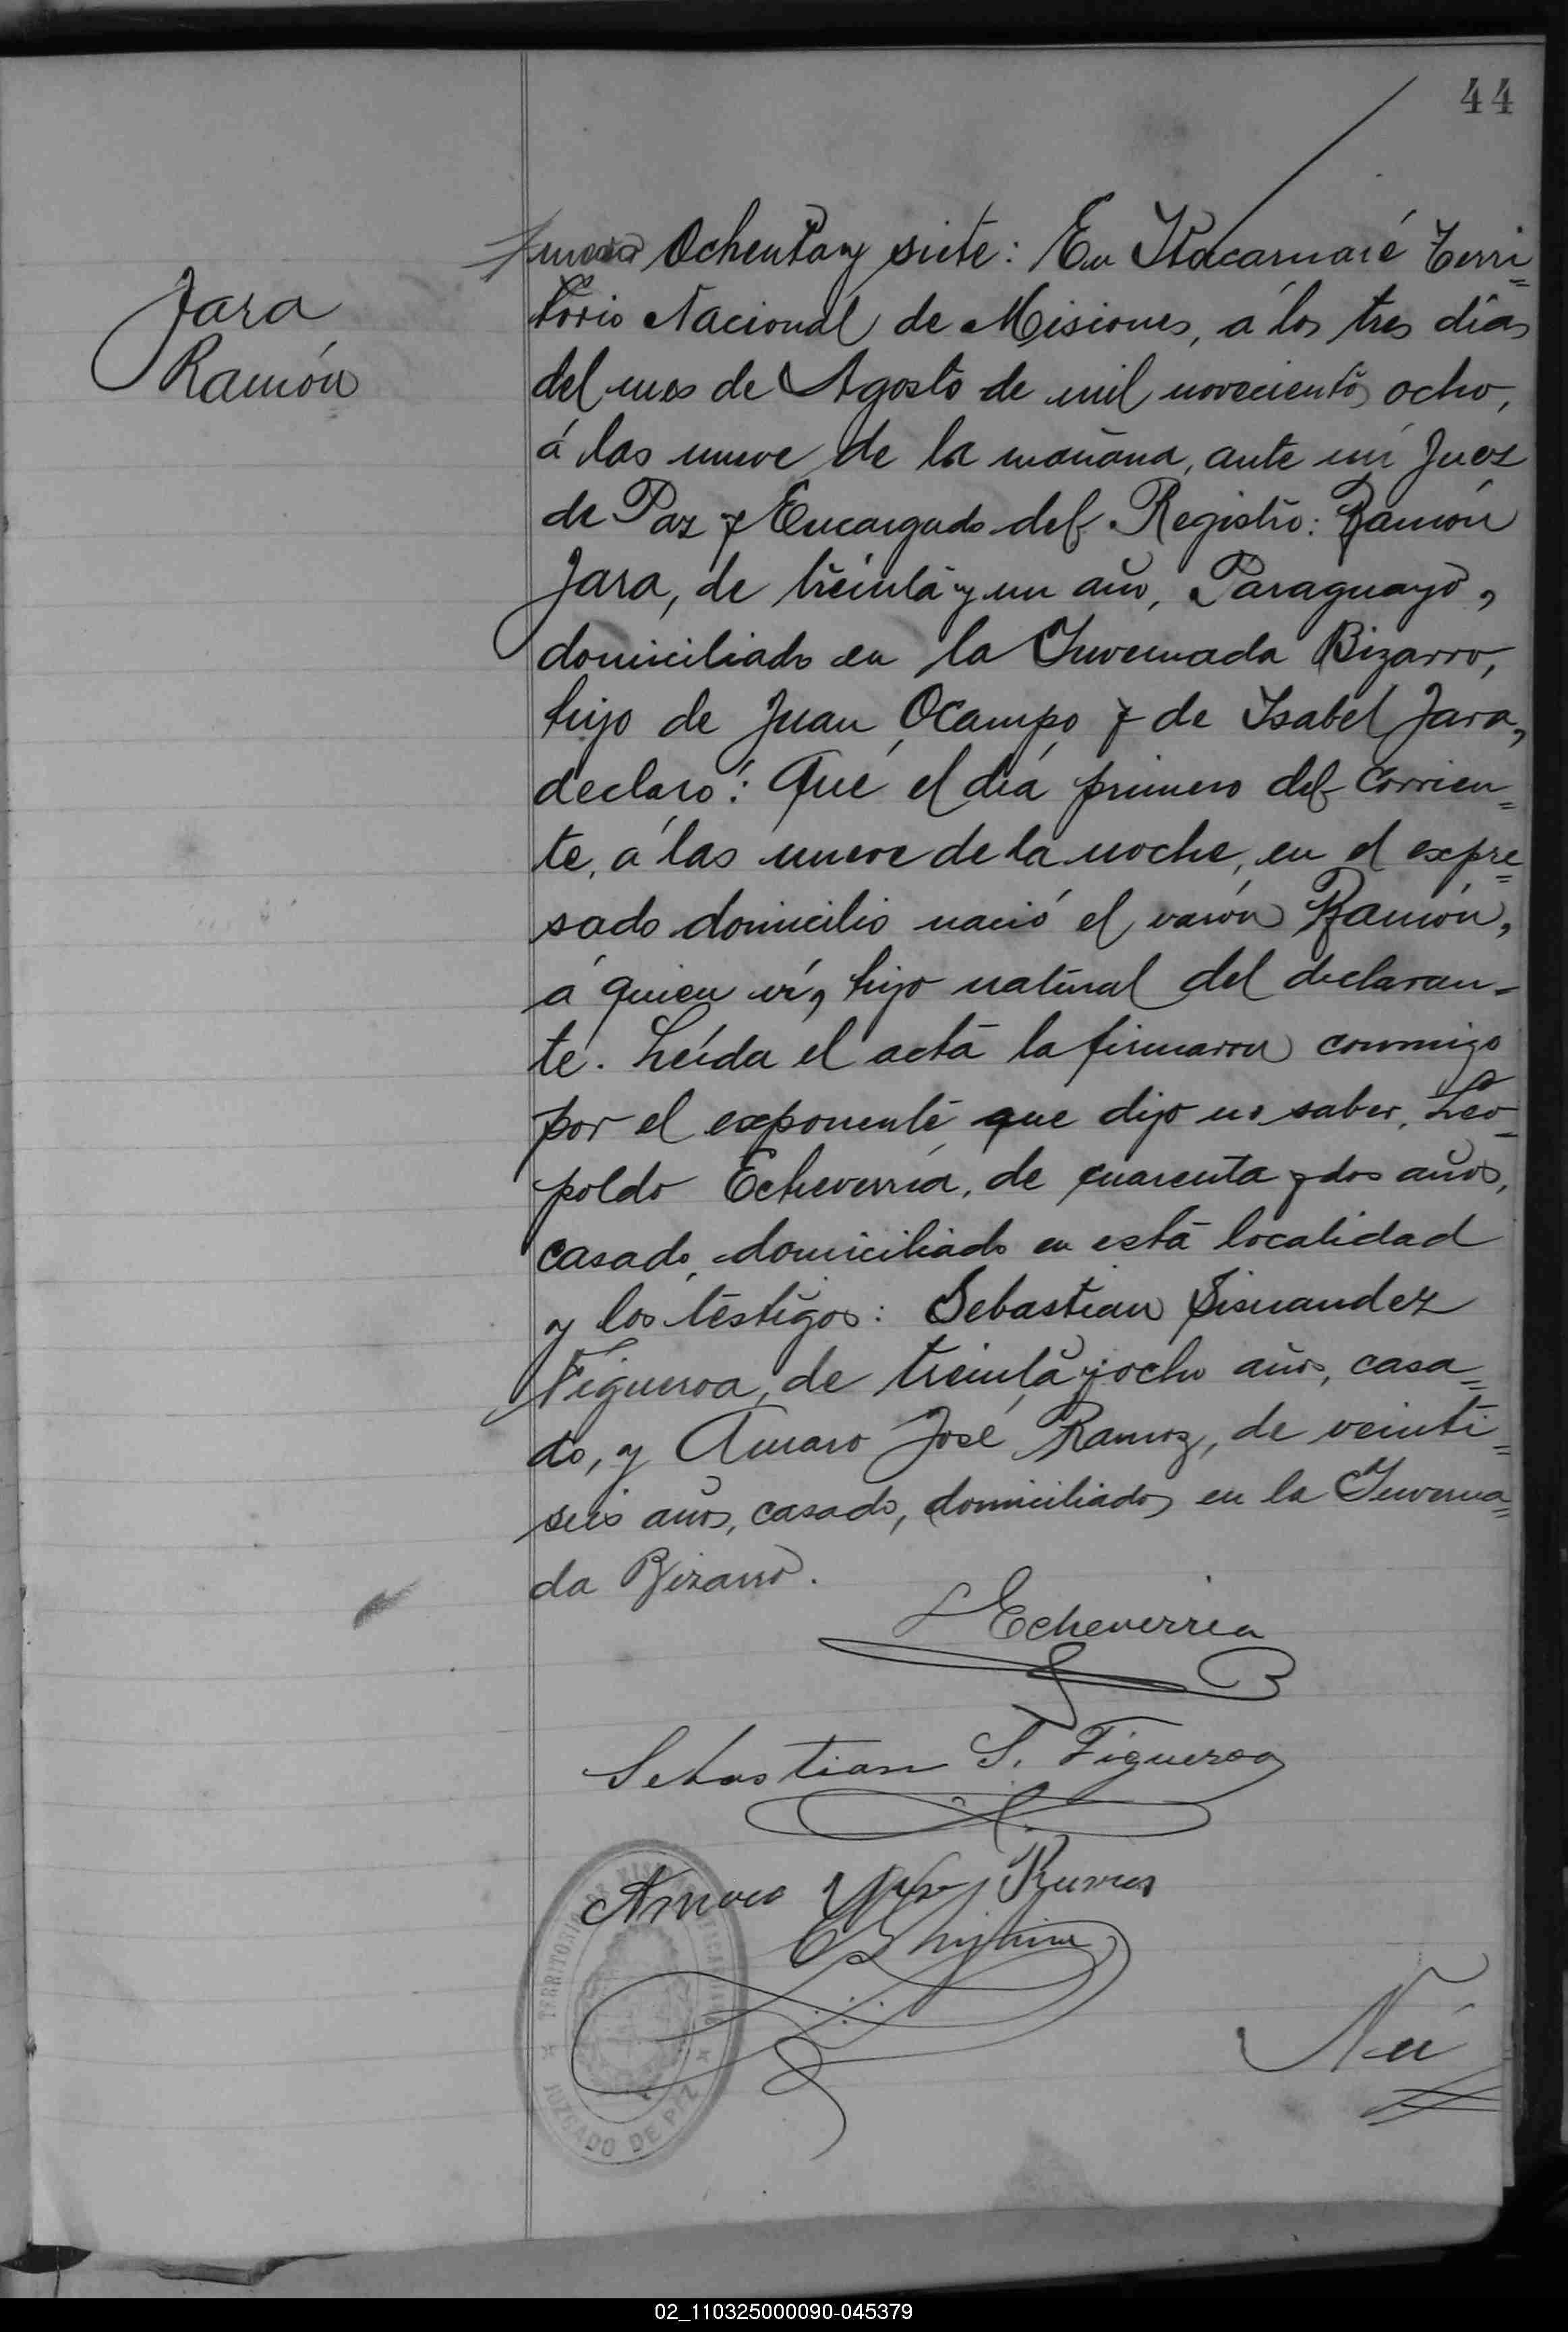 44
Jara
Ramón
Número Ochenta y siete: En Itacaruaré Terri=
torio Nacional de Misiones, á los tres días
del mes de Agosto de mil novecientos ocho,
á las nueve de la mañana, ante mí Juez
de Paz y Encargado del Registro: Ramón
Jara, de treinta y un año, Paraguayo,
domiciliado en la Invernada Bizarro,
hijo de Juan Ocampo y de Isabel Jara,
declaró: Que el día primero del corrien=
te, á las nueve de la noche, en el expre=
sado domicilio nació el varón Ramón,
á quien ví, hijo natural del declaran=
te. Leída el acta la firmaron conmigo
por el exponente que dijo no saber, Leo=
poldo Echeverría, de cuarenta y dos años,
casado, domiciliado en esta localidad
y los testigos: Sebastian Sisnandez
Figueroa, de treinta y ocho años, casa=
do, y Amaro José Ramoz, de veinti=
seis años, casado, domiciliados en la Inverna=
da Bizarro.
L Echeverria
Sebastian S. Figueroa
Amaro José Ramos
TERRITORIO DE MISIONES
JUZGADO DE PAZ
Nú
02_110325000090-045379